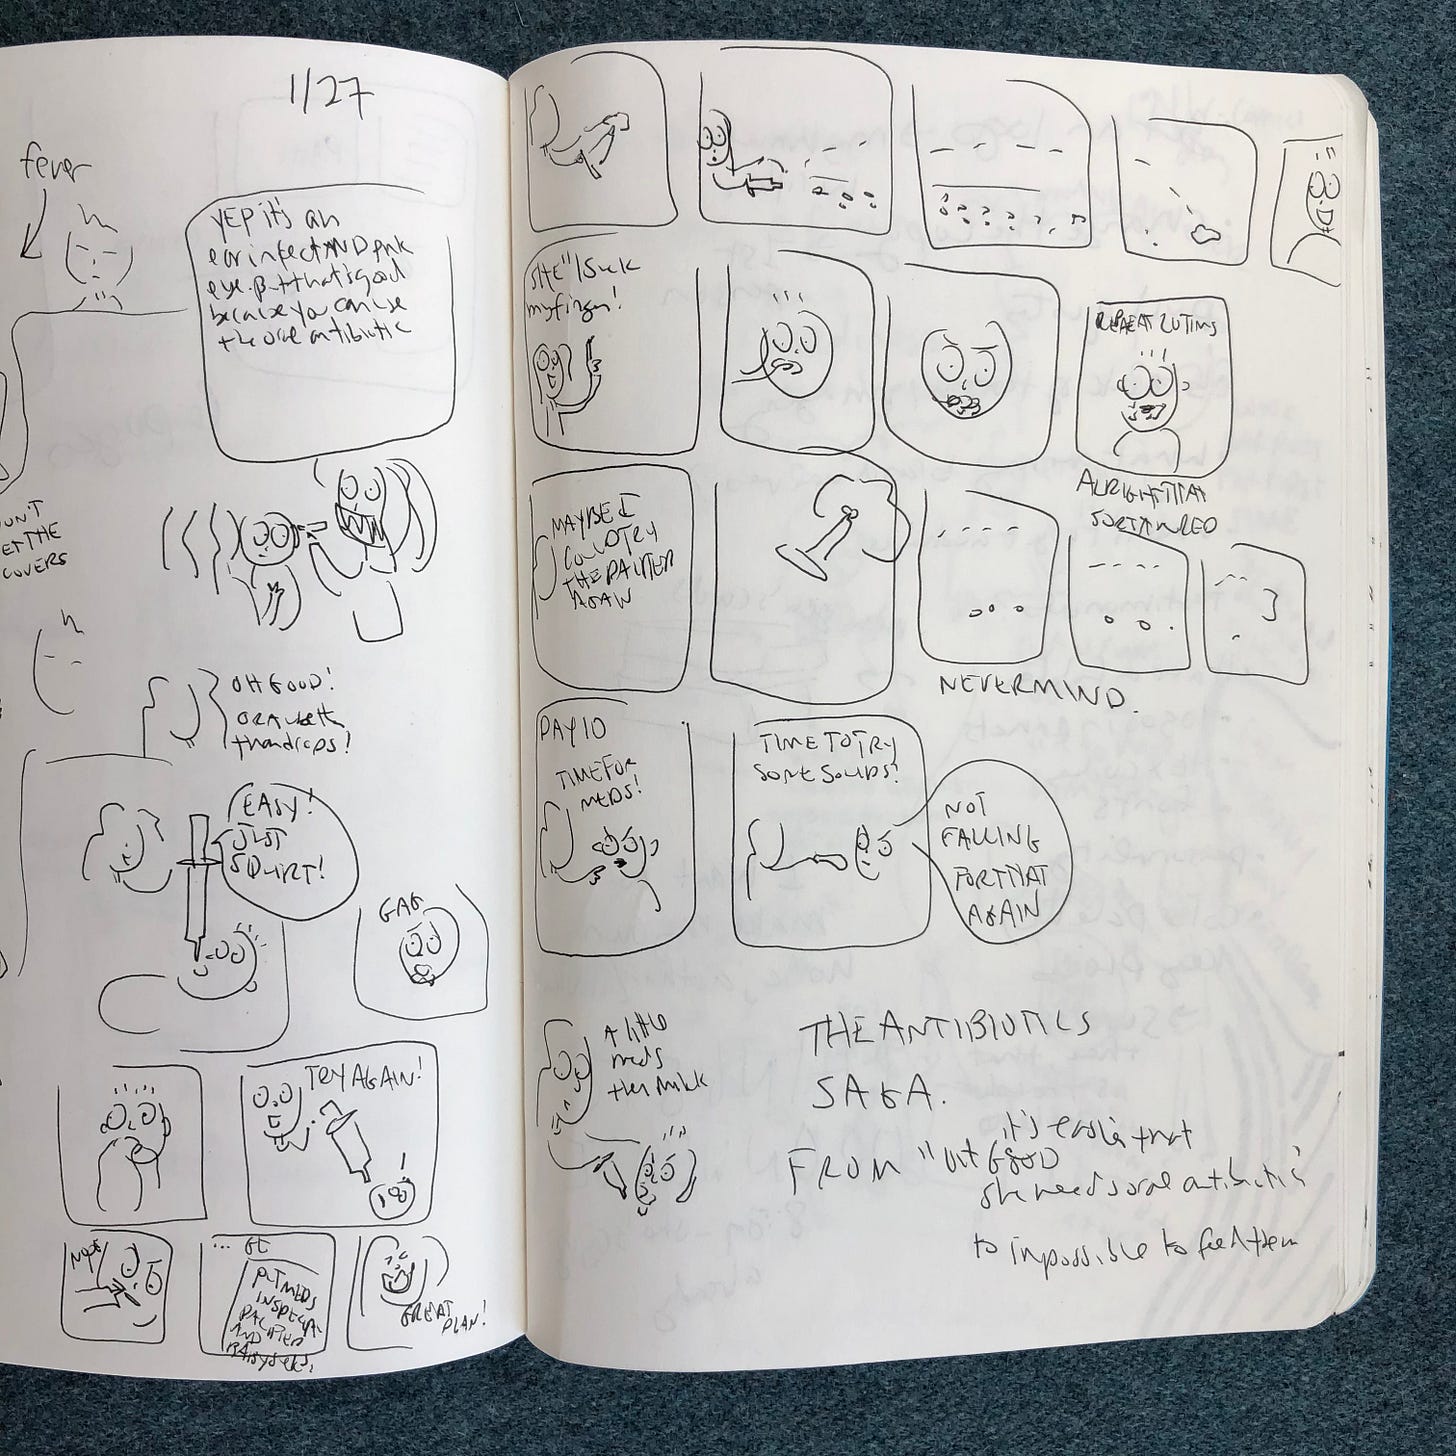 1/27
fever
YEP it's an
ear infect AND pink
eye. But that's good
because you can use
the oral antibiotic
COVERS
OH GOOD!
ORAL
than drops!
EASY!
JUST
SQUIRT!
GAG
TRY AGAIN!
NOPE
...
PUT MEDS
IN SPECIAL
PACIFIER
AND
GREAT
PLAN!
SHE'll suck
my finger!
REPEAT 20 TIMES
ALRIGHT THAT
SORTA WORKED
MAYBE I
COULD TRY
THE PACIFIER
AGAIN
NEVERMIND.
DAY 10
TIME FOR
MEDS!
TIME TO TRY
SOME SOLIDS!
NOT
FALLING
FOR THAT
AGAIN
A little
meds
then milk
THE ANTIBIOTICS
SAGA.
FROM "
it's easier that
she needs oral antibiotics"
to impossible to feed them